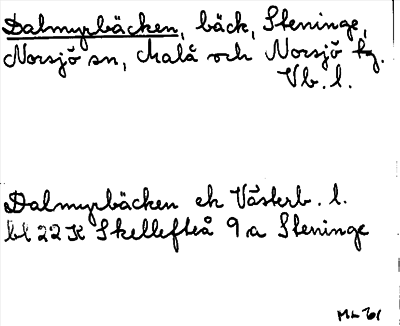 Dalmyrbäcken, bäck, Steninge,
Norsjö sn, Malå och Norsjö tg.
Vb. l.
Dalmyrbäcken ek Västerb. l.
bl 22 K Skellefteå 9 a Steninge
ML 61